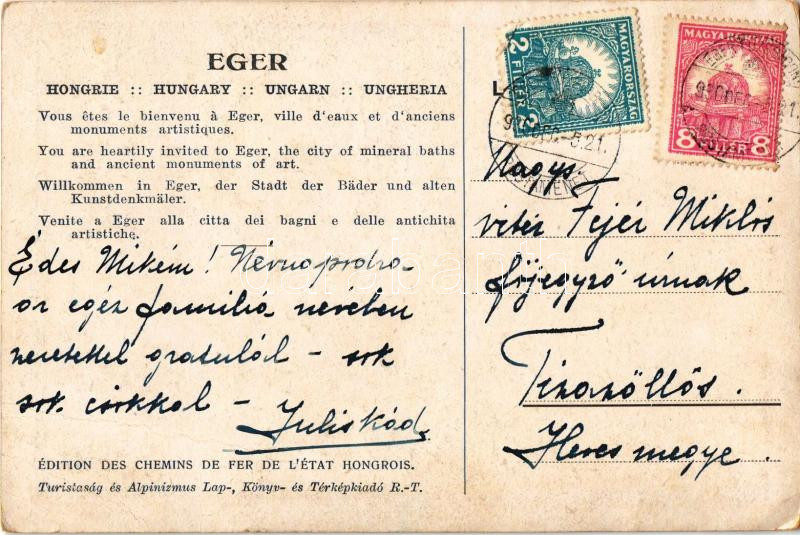 EGER
HONGRIE :: HUNGARY :: UNGARN :: UNGHERIA
Vous êtes le bienvenu à Eger, ville d'eaux et d'anciens
monuments artistiques.
You are heartily invited to Eger, the city of mineral baths
and ancient monuments of art.
Willkommen in Eger, der Stadt der Bäder und alten
Kunstdenkmäler.
Venite a Eger alla citta dei bagni e delle antichita
artistiche.
Édes Mikém! Névnapodra
az egéz familiá nevében
szeretettel gratulál – sok
sok csókkal –
Juliskád.
ÉDITION DES CHEMINS DE FER DE L'ÉTAT HONGROIS.
Turistaság és Alpinizmus Lap-, Könyv- és Térképkiadó R.-T.
2 FILLÉR 2
MAGYARORSZÁG
MAGYARORSZÁG
8 FILLÉR 8
Nagys.
vitéz Fejér Miklós
főjegyző úrnak
Tiszaszőllős.
Heves megye.